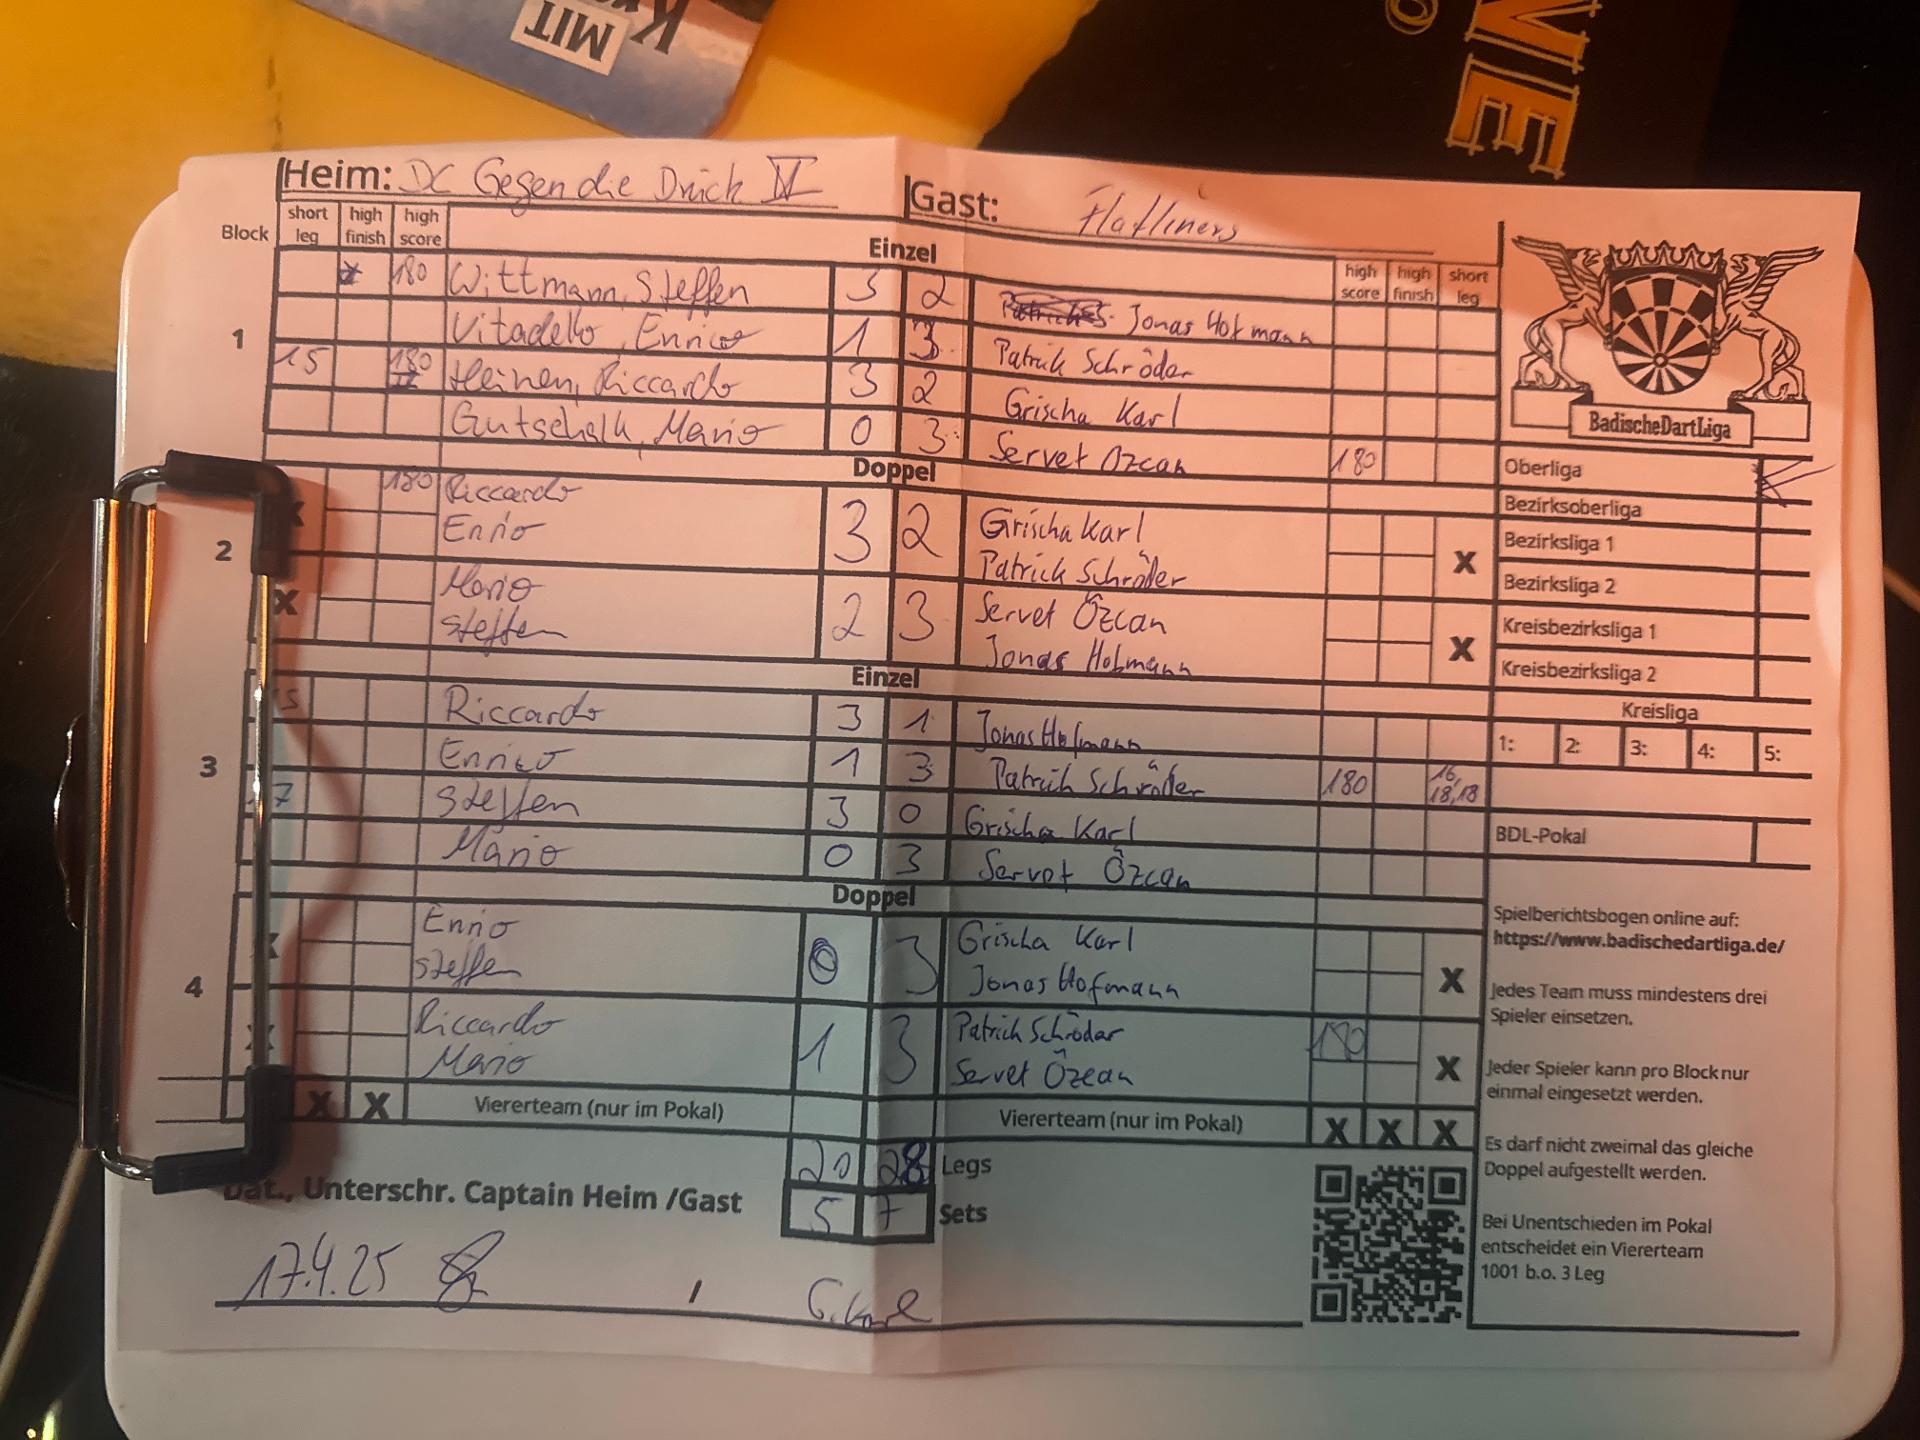 MIT
VIE
Heim: DC Gegen die Drück IV
Gast: Flatliners
Block short leg high finish high score
Einzel
high score high finish short leg
1
180 Wittmann, Steffen 3 2 Jonas Hofmann
Vitadello, Enrico 1 3 Patrick Schröder
15 180 II Heinen, Riccardo 3 2 Grischa Karl
Gutschalk, Mario 0 3 Servet Özcan 180
Doppel
2
X 180 Riccardo
Enrio 3 2 Grischa Karl
Patrick Schröder X
X Mario
Steffen 2 3 Servet Özcan
Jonas Hofmann X
Einzel
3
Riccardo 3 1 Jonas Hofmann
Enrico 1 3 Patrick Schröder 180 16, 18,18
Steffen 3 0 Grischa Karl
Mario 0 3 Servet Özcan
Doppel
4
X Enrio
Steffen 0 3 Grischa Karl
Jonas Hofmann X
X Riccardo
Mario 1 3 Patrick Schröder
Servet Özcan 180 X
X X Viererteam (nur im Pokal) Viererteam (nur im Pokal) X X X
20 28 Legs
5 7 Sets
Dat., Unterschr. Captain Heim /Gast
17.4.25 / G. Karl
BadischeDartLiga
Oberliga
Bezirksoberliga
Bezirksliga 1
Bezirksliga 2
Kreisbezirksliga 1
Kreisbezirksliga 2
Kreisliga
1: 2: 3: 4: 5:
BDL-Pokal
Spielberichtsbogen online auf:
https://www.badischedartliga.de/
Jedes Team muss mindestens drei
Spieler einsetzen.
Jeder Spieler kann pro Block nur
einmal eingesetzt werden.
Es darf nicht zweimal das gleiche
Doppel aufgestellt werden.
Bei Unentschieden im Pokal
entscheidet ein Viererteam
1001 b.o. 3 Leg